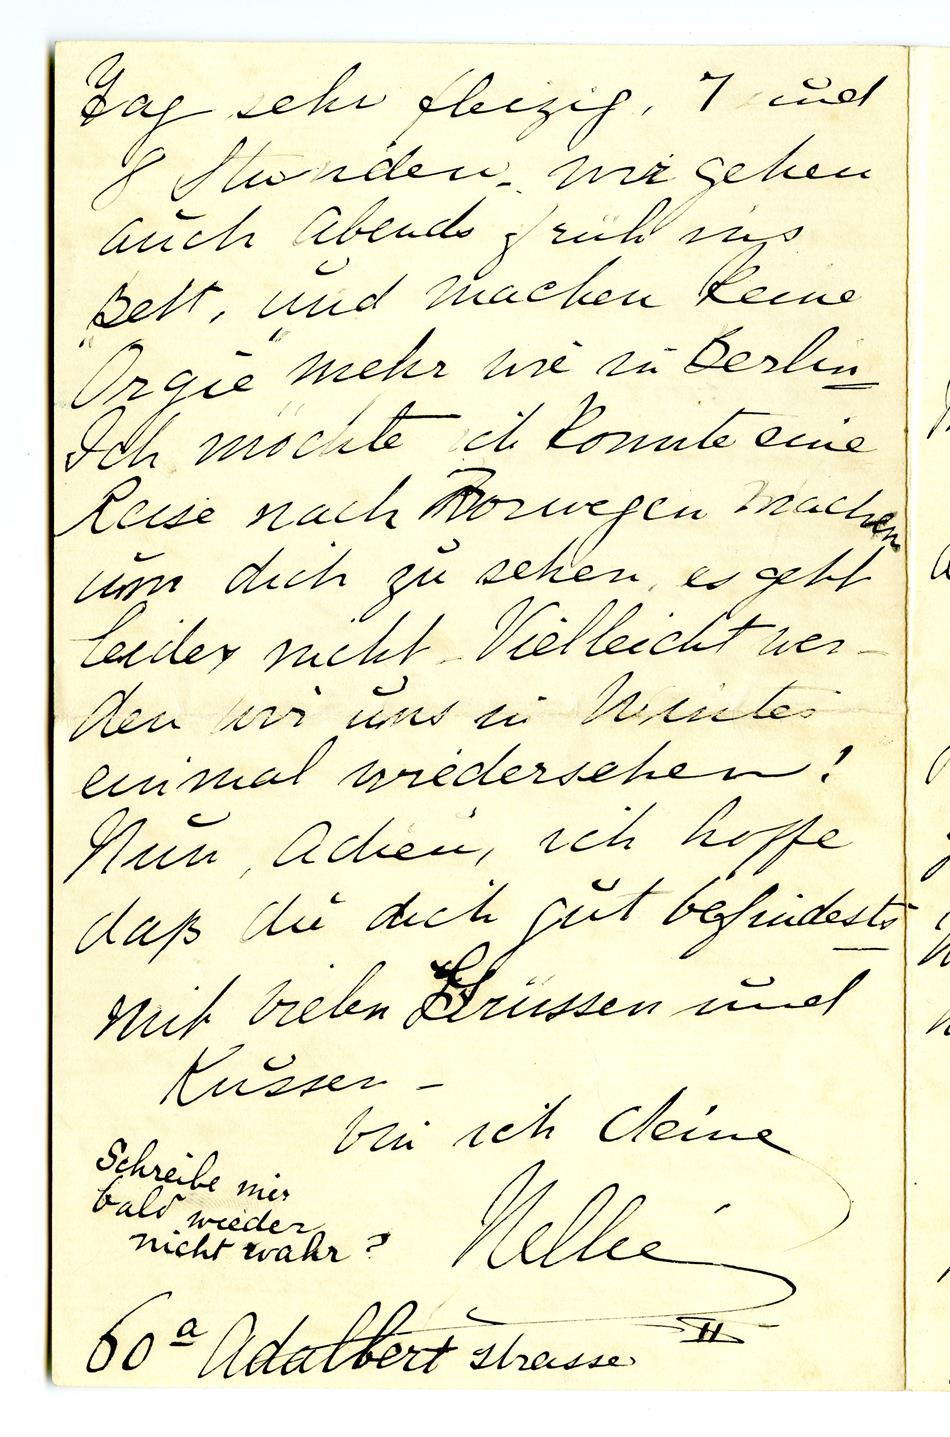 Tag sehr fleizig, 7 und
8 Stunden - wir gehen
auch Abends früh ins
Bett, und machen keine
"Orgie" mehr wie in Berlin
Ich möchte ich konnte eine
Reise nach Norwegen machen
um dich zu sehen, es geht
leider nicht - Vielleicht wer-
den wir uns in Winter
einmal wiedersehen!
Nun, Adieu, ich hoffe
daß du dich gut befindest
mit vielen Grüssen und
Kussen -
bin ich deine
Nellie
Schreibe mir
bald wieder
nicht wahr?
60a Adalbert strasse II